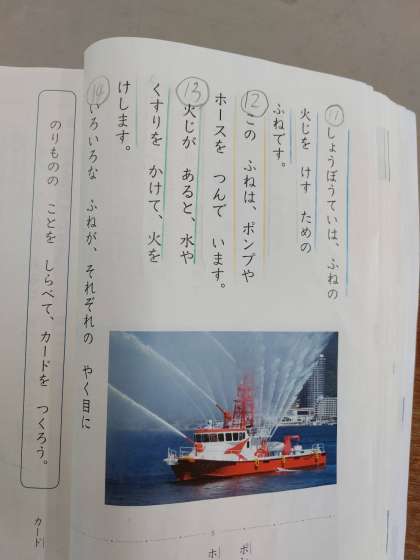 ⑪しょうぼうていは、ふねの
火じを けす ための
ふねです。
⑫この ふねは、ポンプや
ホースを つんで います。
⑬火じが あると、水や
くすりを かけて、火を
けします。
⑭いろいろな ふねが、それぞれの やく目に
のりものの ことを しらべて、カードを つくろう。
カード